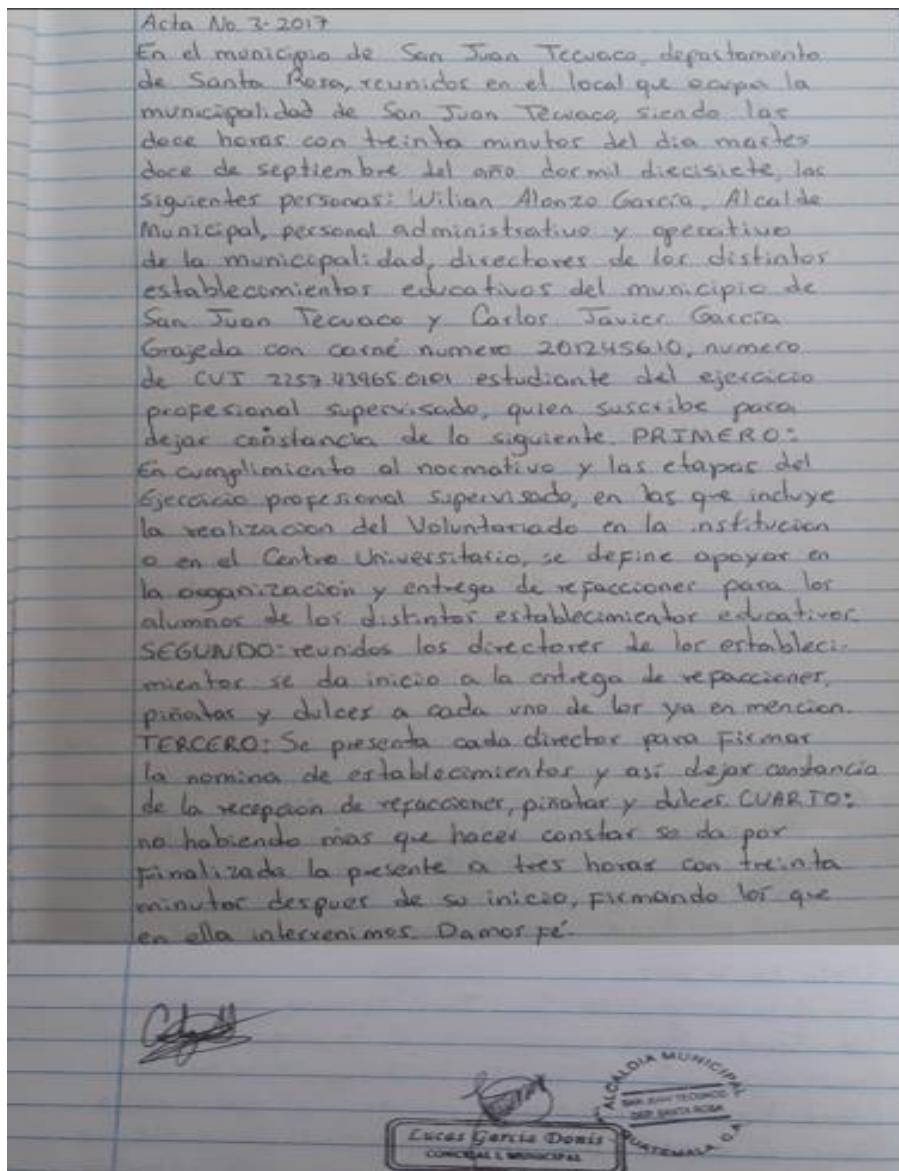 Acta No. 3-2017
En el municipio de San Juan Tecuaco, departamento
de Santa Rosa, reunidos en el local que ocupa la
municipalidad de San Juan Tecuaco, siendo las
doce horas con treinta minutos del dia martes
doce de septiembre del año dos mil diecisiete, las
siguientes personas: Wilian Alonzo García, Alcalde
Municipal, personal administrativo y operativo
de la municipalidad, directores de los distintos
establecimientos educativos del municipio de
San Juan Tecuaco y Carlos Javier García
Grajeda con carné numero 201245610, numero
de CUI 2257 43965 0101 estudiante del ejercicio
profesional supervisado, quien suscribe para
dejar constancia de lo siguiente. PRIMERO:
En cumplimiento al normativo y las etapas del
Ejercicio profesional supervisado, en las que incluye
la realizacion del Voluntariado en la institucion
o en el Centro Universitario, se define apoyar en
la organización y entrega de refacciones para los
alumnos de los distintos establecimientos educativos.
SEGUNDO: reunidos los directores de los estableci-
mientos se da inicio a la entrega de refacciones,
piñatas y dulces a cada uno de los ya en mencion.
TERCERO: Se presenta cada director para Firmar
la nomina de establecimientos y así dejar constancia
de la recepcion de refacciones, piñatas y dulces. CUARTO:
no habiendo mas que hacer constar se da por
Finalizada la presente a tres horas con treinta
minutos despues de su inicio, firmando los que
en ella intervenimos. Damos fé.
ALCALDIA MUNICIPAL
SAN JUAN TECUACO
DEP. SANTA ROSA
GUATEMALA, C.A.
Lucas García Donis
CONCEJAL I. MUNICIPAL